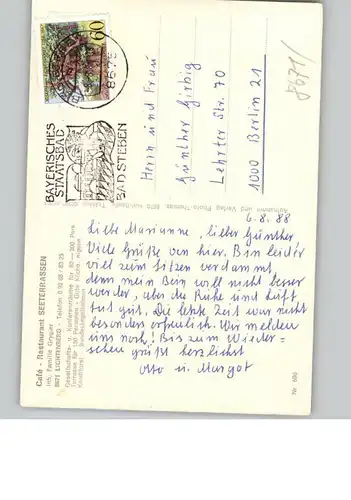 60
8675
BAYERISCHES
STAATSBAD
BAD STEBEN
8671/
Herrn und Frau
Günther Girbig
Lehrter Str. 70
1000 Berlin 21
6.8.88
Liebe Marianne, lieber Günther
Viele Grüße von hier. Bin leider
viel zum sitzen verdammt,
denn mein Bein will nicht besser
werden, aber die Ruhe und Luft
tut gut. Die letzte Zeit war nicht
besonders erfreulich. Wir melden
uns noch! Bis zum Wieder-
sehen grüßt herzlichst
Otto u. Margot
Café - Restaurant SEETERRASSEN
Inh. Familie Gropler
8671 LICHTENBERG - Telefon 0 92 88 / 63 25
Gesellschafts- u. Konferenzräume für 80 — 300 Pers.
Terrasse für 100 Personen - Gute Küche, eigene
Konditorei